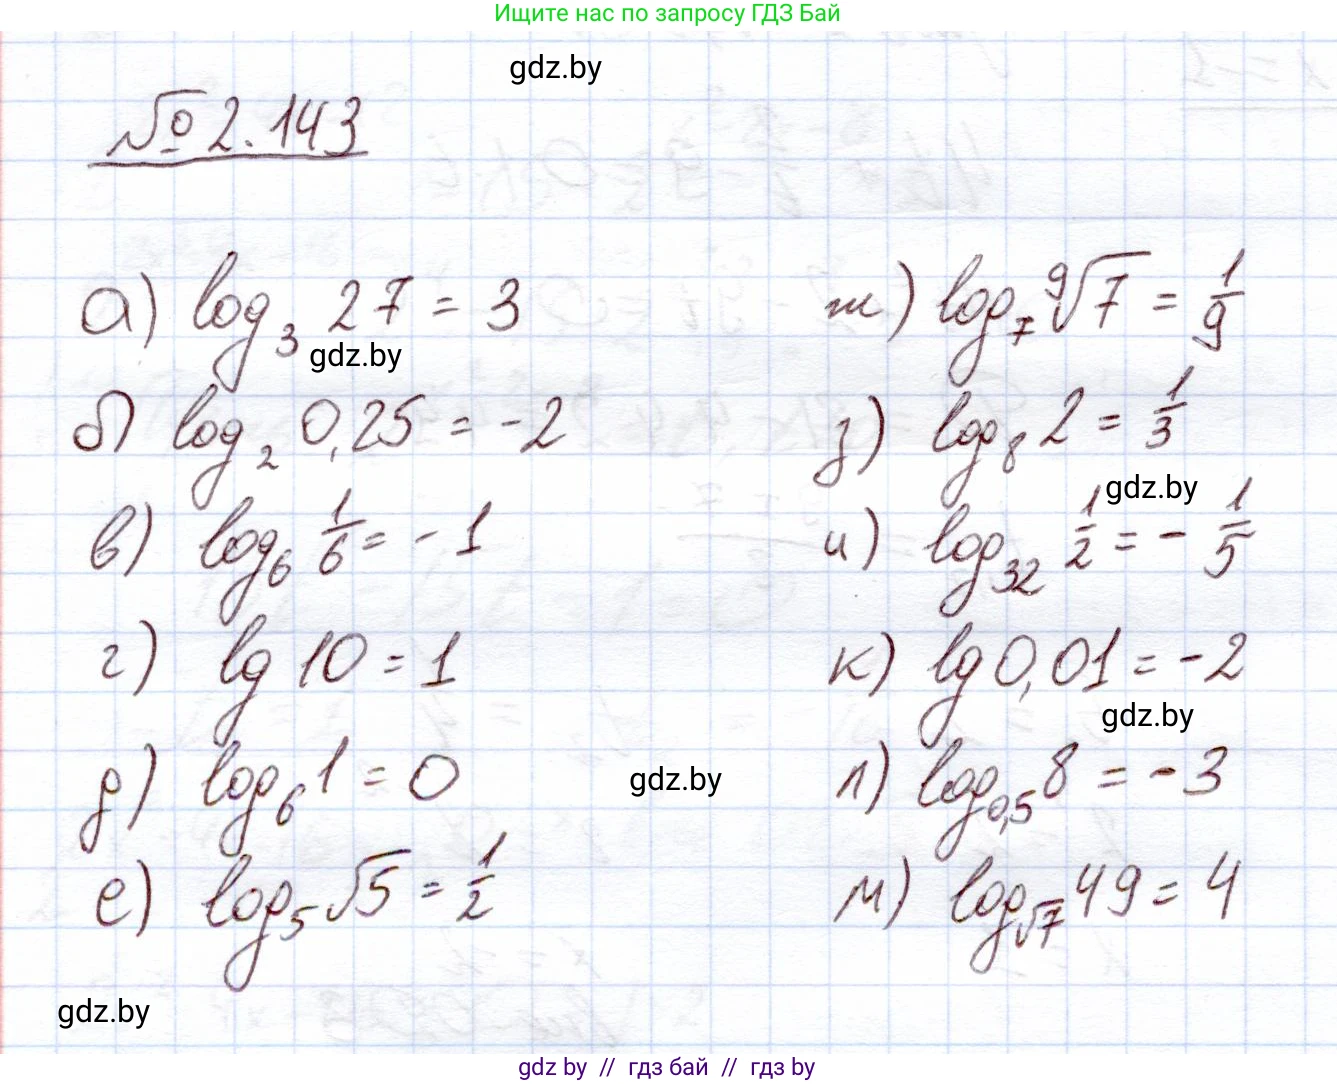 Ищите нас по запросу ГДЗ Бай
gdz.by
№ 2.143
а) log₃ 27 = 3
gdz.by
б) log₂ 0,25 = -2
в) log₆ 1/6 = -1
г) lg 10 = 1
д) log₆ 1 = 0
gdz.by
е) log₅ √5 = 1/2
ж) log₇ ⁹√7 = 1/9
з) log₈ 2 = 1/3
gdz.by
и) log₃₂ 1/2 = - 1/5
к) lg 0,01 = -2
gdz.by
л) log₀,₅ 8 = -3
м) log_√7 49 = 4
gdz.by
gdz by // гдз бай // gdz by